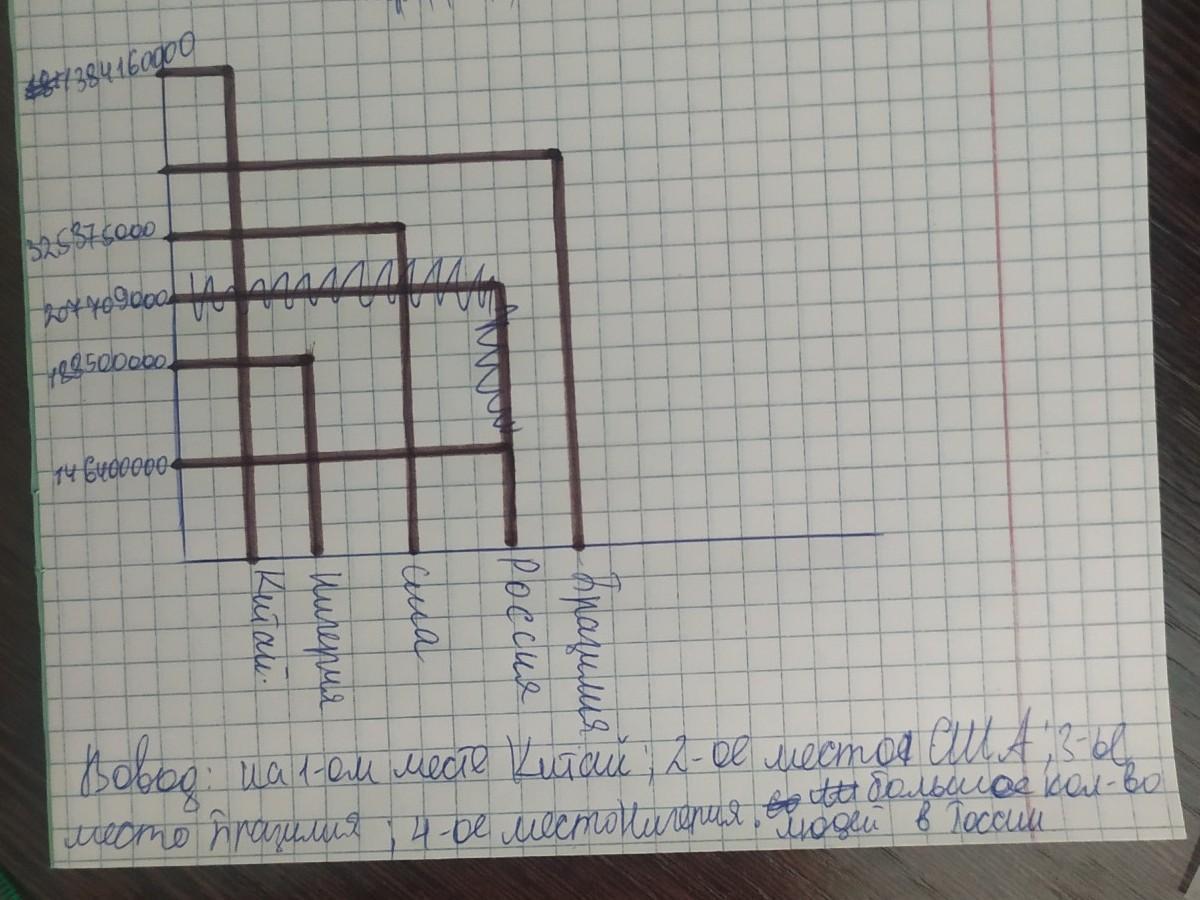 1384160000
325375000
207709000
188500000
146400000
Китай.
Нигерия
сша
Россия
Бразилия
Вовод: на 1-ом месте Китай; 2-ое место США; 3-ье
место Бразилия; 4-ое место Нигерия. большое кол-во
людей в России